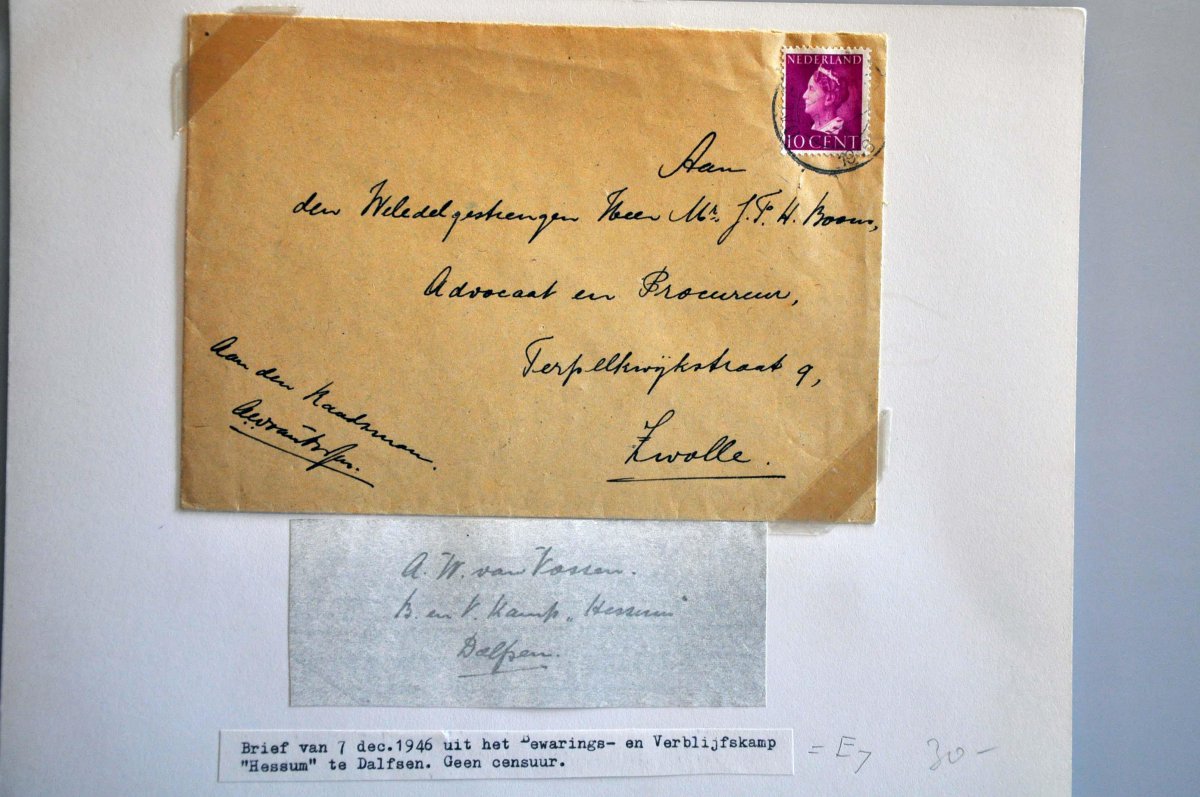 NEDERLAND
10 CENT
Aan
den Weledelgestrengen Heer Mr. J.F.H. Booms,
Advocaat en Procureur,
Terpelkwijkstraat 9,
Zwolle.
Aan den Raadsman.
A. W. van Vossen.
B. en V. Kamp „Hessum"
Dalfsen.
Brief van 7 dec.1946 uit het Bewarings- en Verblijfskamp
"Hessum" te Dalfsen. Geen censuur.
= E7 30-